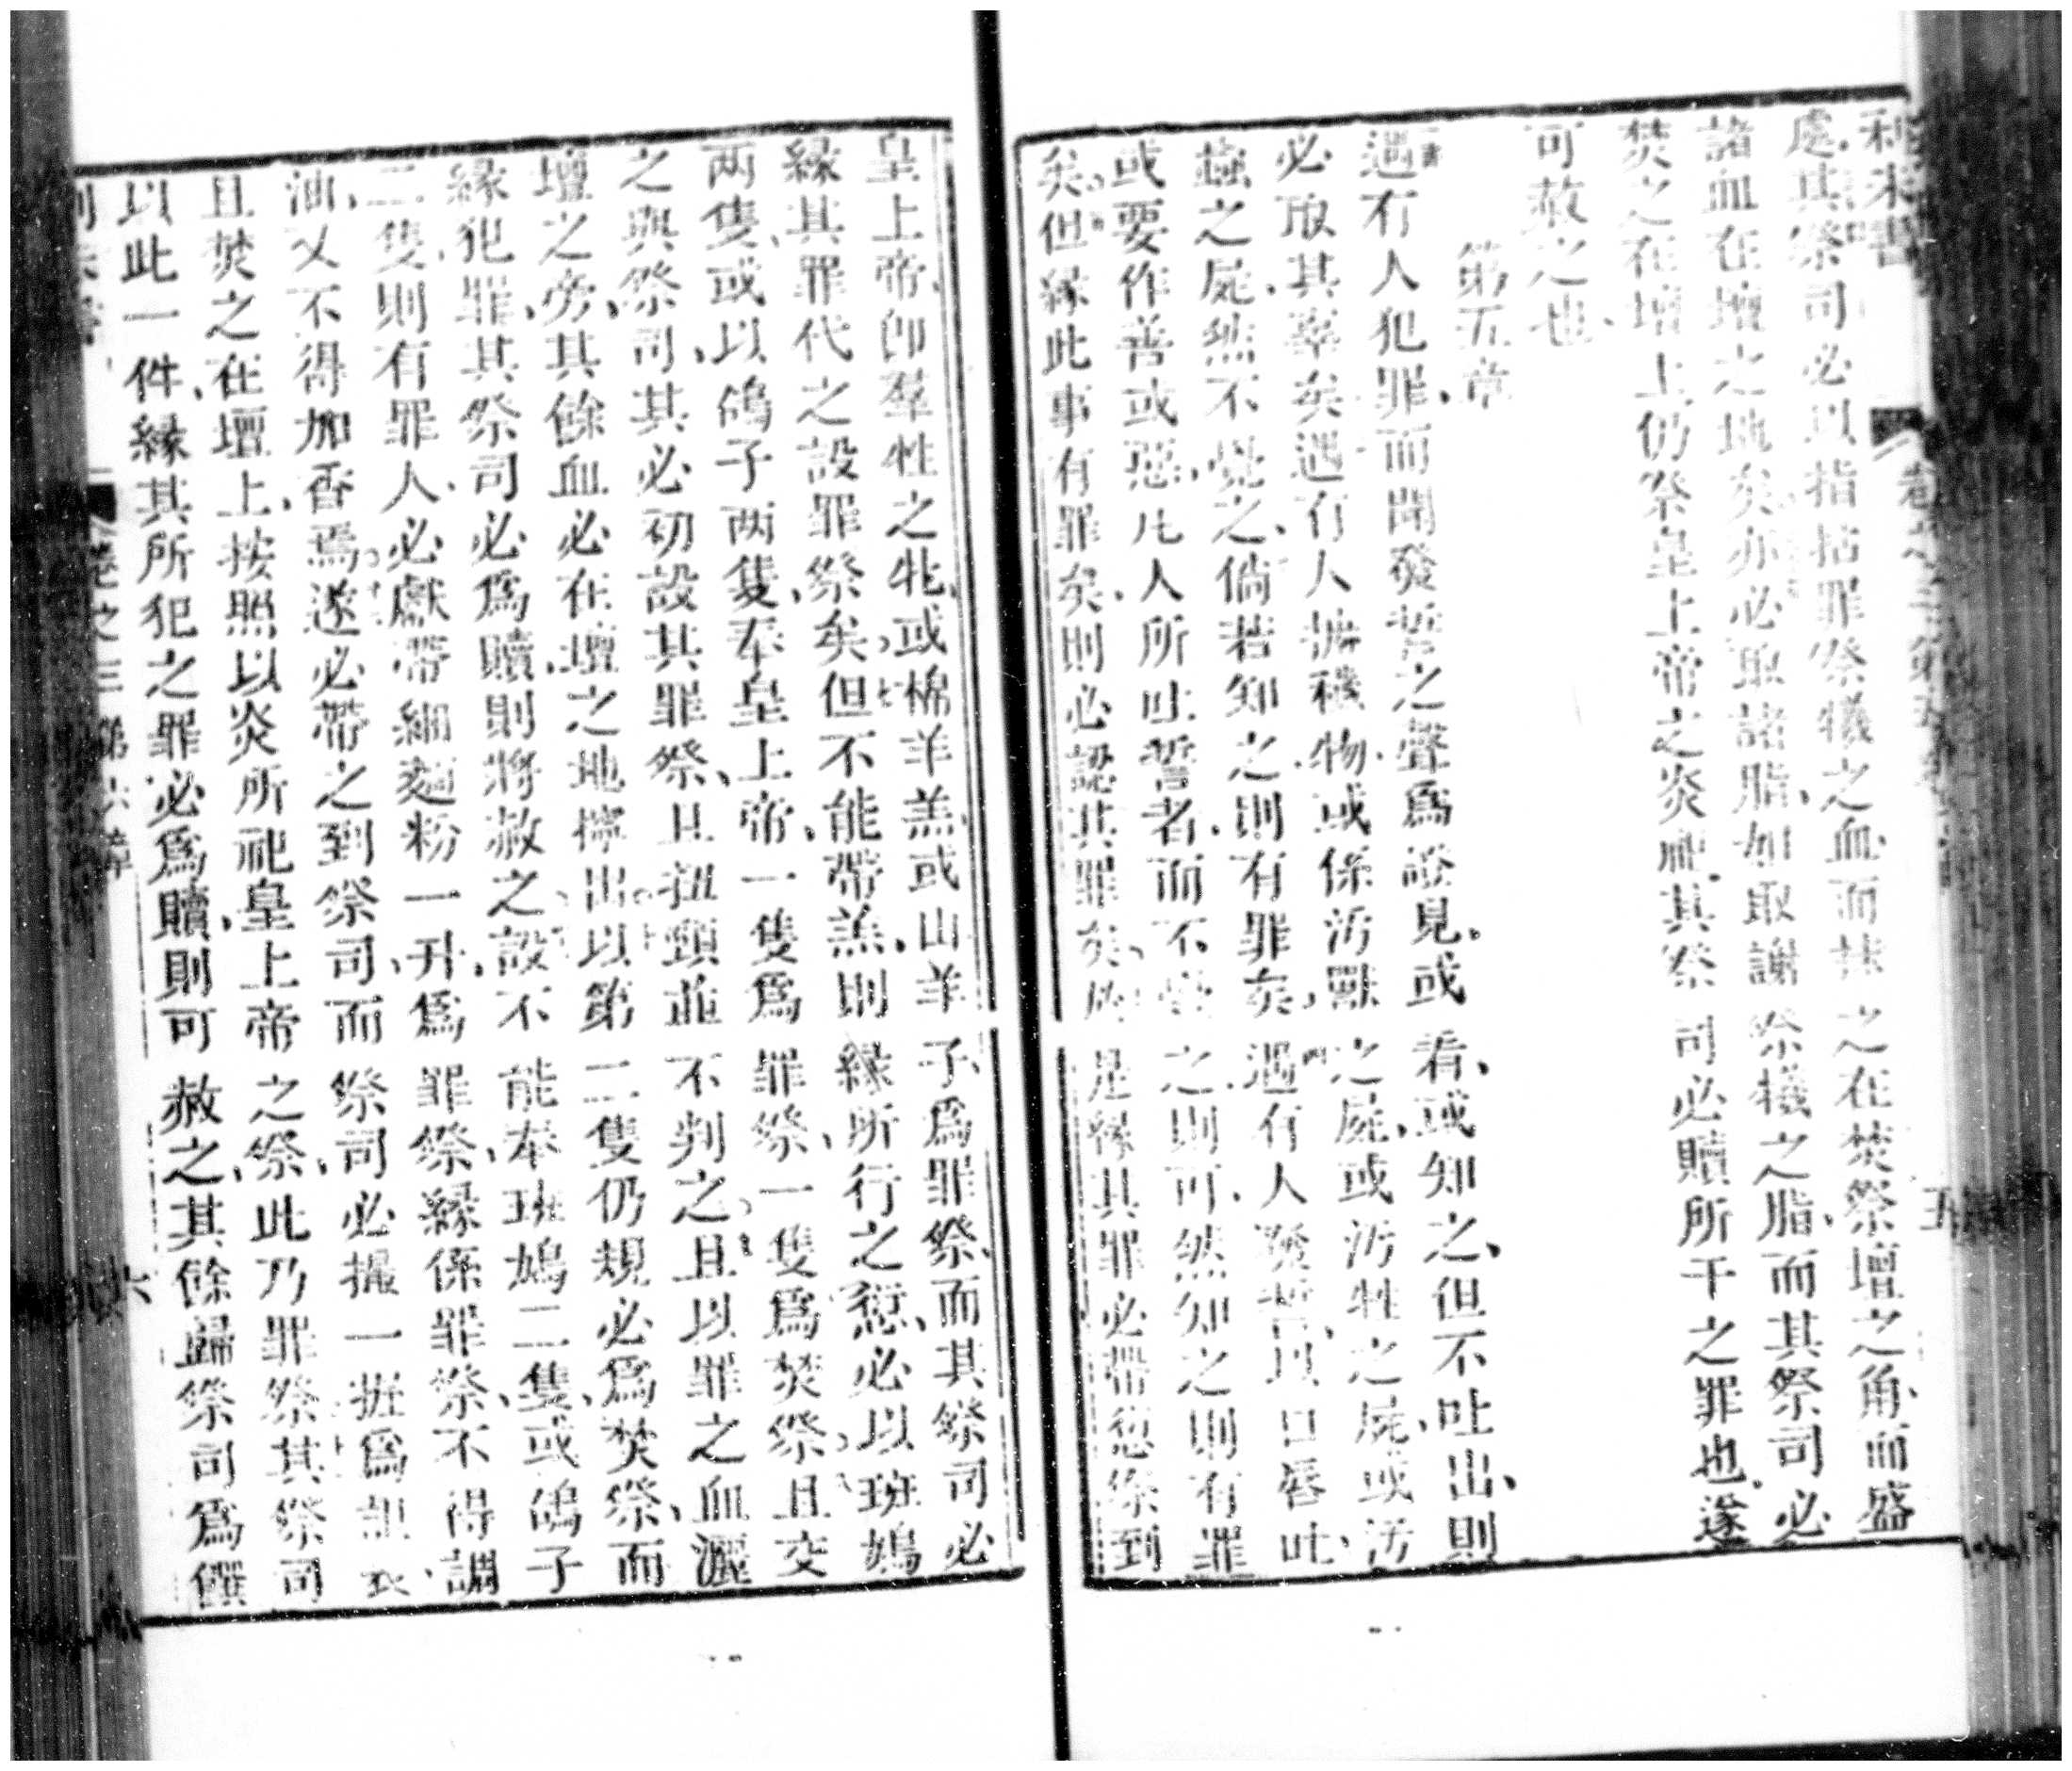 利未書 卷之三第五章 五
處其祭司必以指拈罪祭犧之血而抹之在焚祭壇之角而盛
諸血在壇之地矣亦必取諸脂如取謝祭犧之脂而其祭司必
焚之在壇上仍祭皇上帝之炎祀其祭司必贖所干之罪也遂
可赦之也
第五章
遇有人犯罪而聞發誓之聲為證見或看或知之但不吐出則
必取其辜矣遇有人摸穢物或係汚獸之屍或汚牲之屍或汚
蟲之屍然不覺之倘若知之則有罪矣遇有人發誓以口唇吐
或要作善或惡凡人所吐誓者而不覺之則可然知之則有罪
矣但緣此事有罪矣則必認其罪矣於是緣其罪必帶愆祭到
皇上帝卽羣牲之牝或棉羊羔或山羊子為罪祭而其祭司必
緣其罪代之設罪祭矣但不能帶羔則緣所行之愆必以斑鳩
两隻或以鴿子两隻奉皇上帝一隻為罪祭一隻為焚祭且交
之與祭司其必初設其罪祭且扭頸並不判之且以罪之血灑
壇之旁其餘血必在壇之地擰出以第二隻仍規必為焚祭而
緣犯罪其祭司必為贖則將赦之設不能奉斑鳩二隻或鴿子
二隻則有罪人必獻帶細麵粉一升為罪祭緣係罪祭不得調
油乂不得加香焉遂必帶之到祭司而祭司必撮一握為記表
且焚之在壇上按照以炎所祀皇上帝之祭此乃罪祭其祭司
以此一件緣其所犯之罪必為贖則可赦之其餘歸祭司為饌
利未書 卷之三 第六章 六